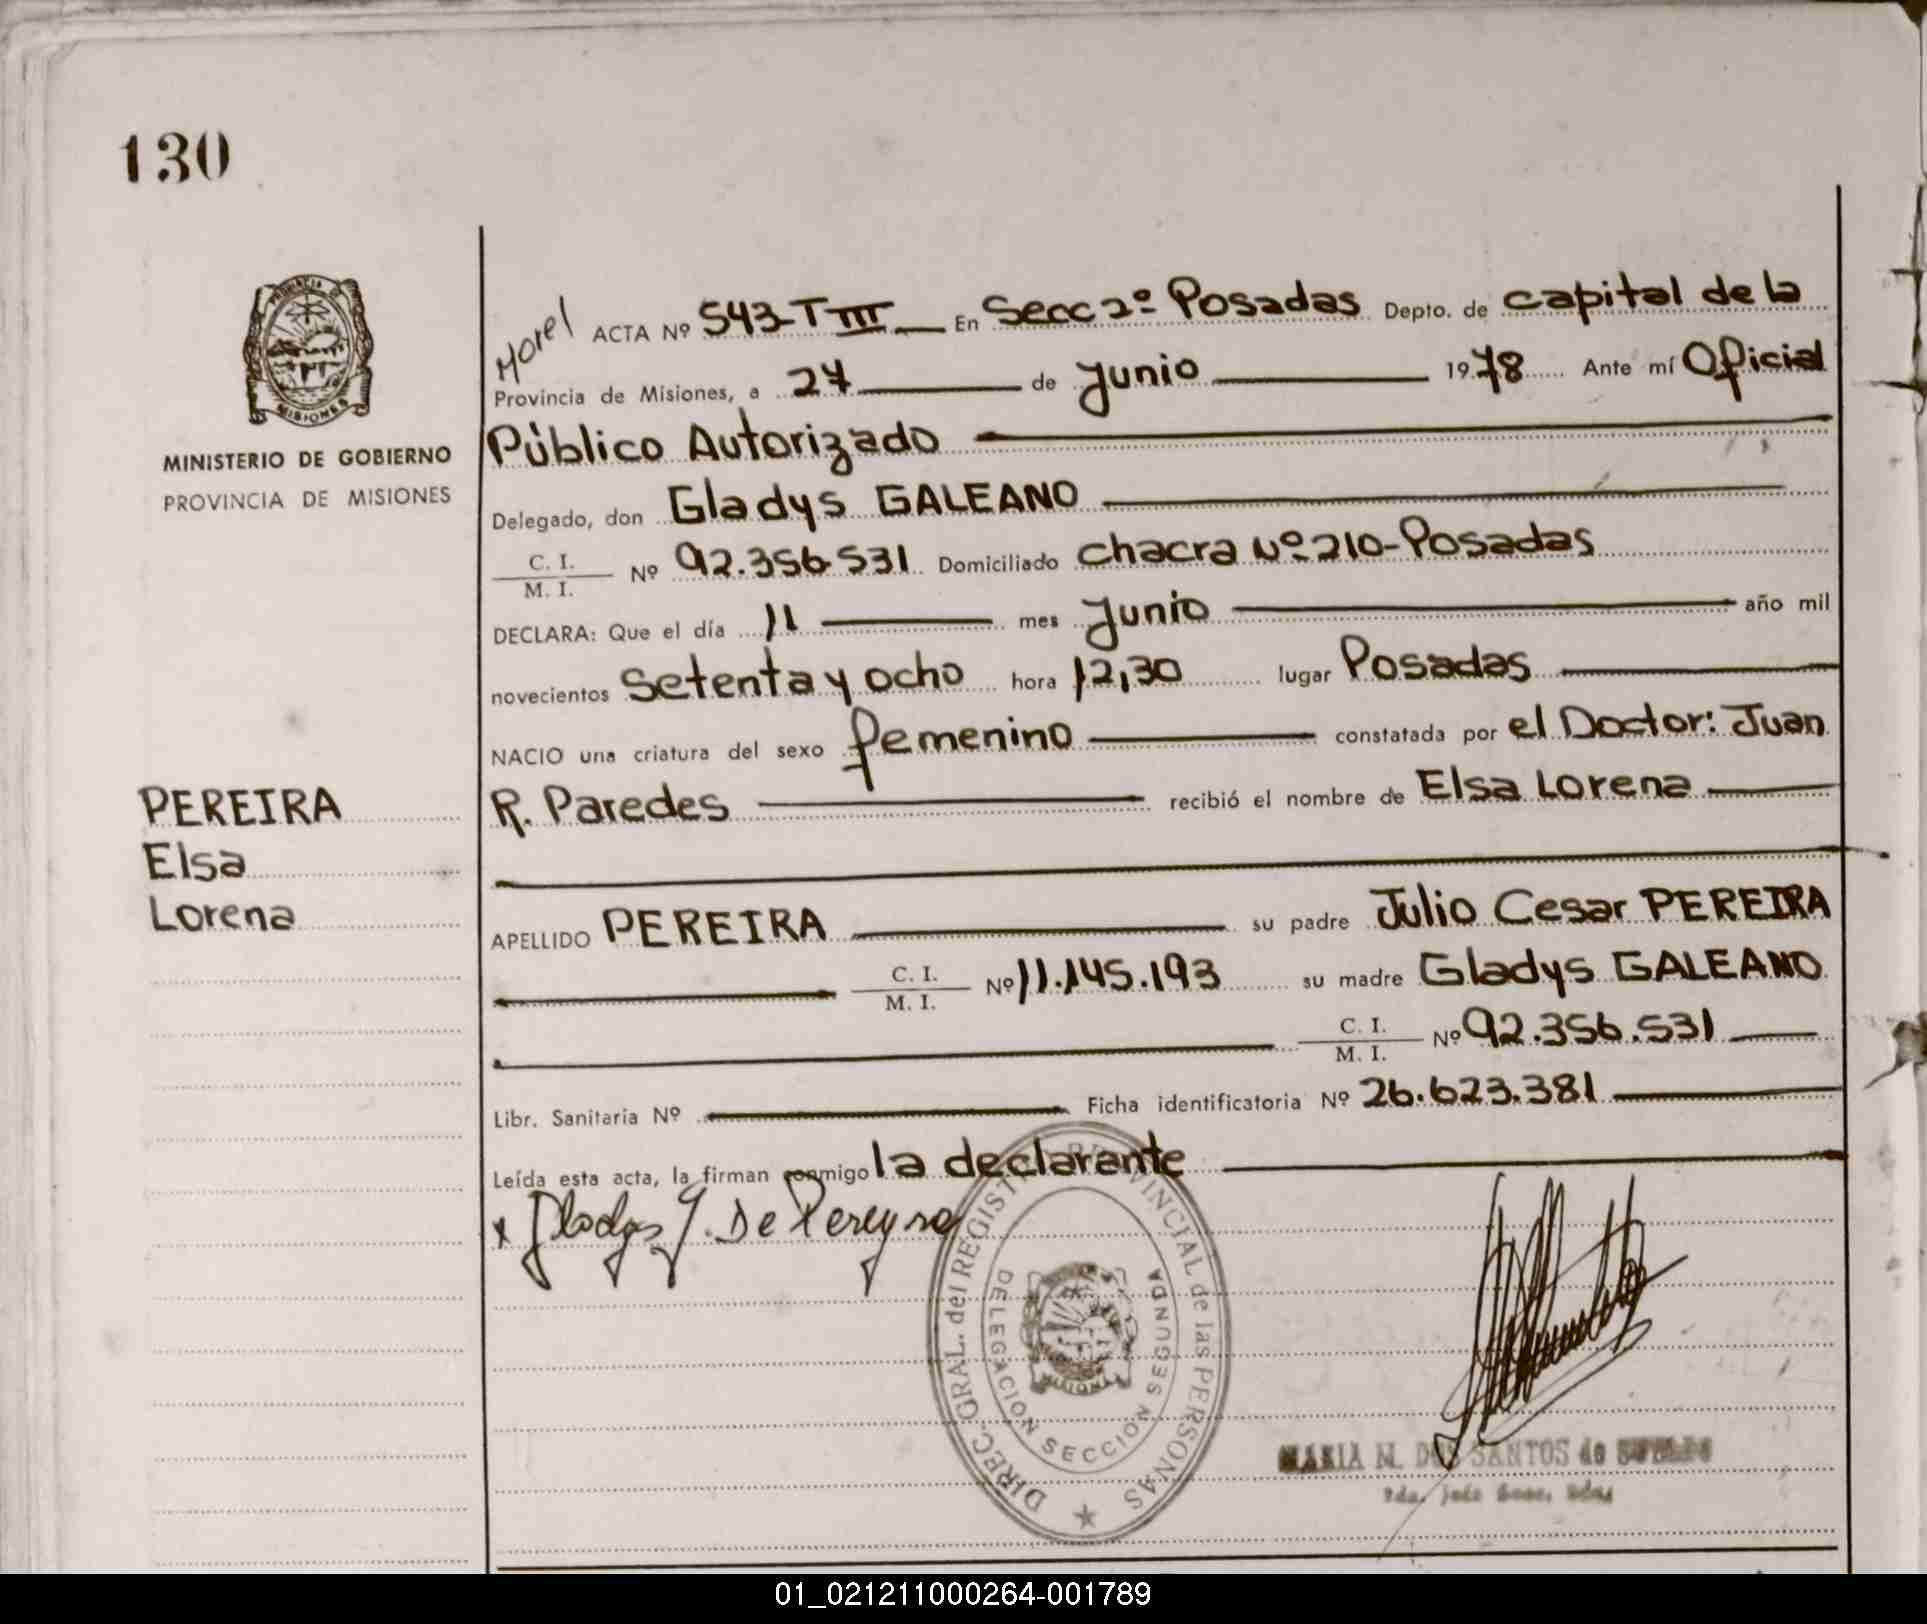 130
PROVINCIA DE
MISIONES
MINISTERIO DE GOBIERNO
PROVINCIA DE MISIONES
PEREIRA
Elsa
Lorena
Morel
ACTA Nº 543-T III En Secc 2º Posadas Depto. de capital de la
Provincia de Misiones, a 27 de Junio 1978 Ante mí Oficial
Público Autorizado
Delegado, don Gladys GALEANO
C. I.
M. I. Nº 92.356.531 Domiciliado Chacra Nº 210-Posadas
DECLARA: Que el día 11 mes Junio año mil
novecientos setenta y ocho hora 12,30 lugar Posadas
NACIO una criatura del sexo femenino constatada por el Doctor: Juan
R. Paredes recibió el nombre de Elsa Lorena
APELLIDO PEREIRA su padre Julio Cesar PEREIRA
C. I.
M. I. Nº 11.145.193 su madre Gladys GALEANO
C. I.
M. I. Nº 92.356.531
Libr. Sanitaria Nº Ficha identificatoria Nº 26.623.381
Leída esta acta, la firman conmigo la declarante
x Gladys G. De Pereyra
DIREC. GRAL. del REGISTRO PROVINCIAL de las PERSONAS
DELEGACION SECCION SEGUNDA
MISIONES
MARIA M. DOS SANTOS de
01_021211000264-001789